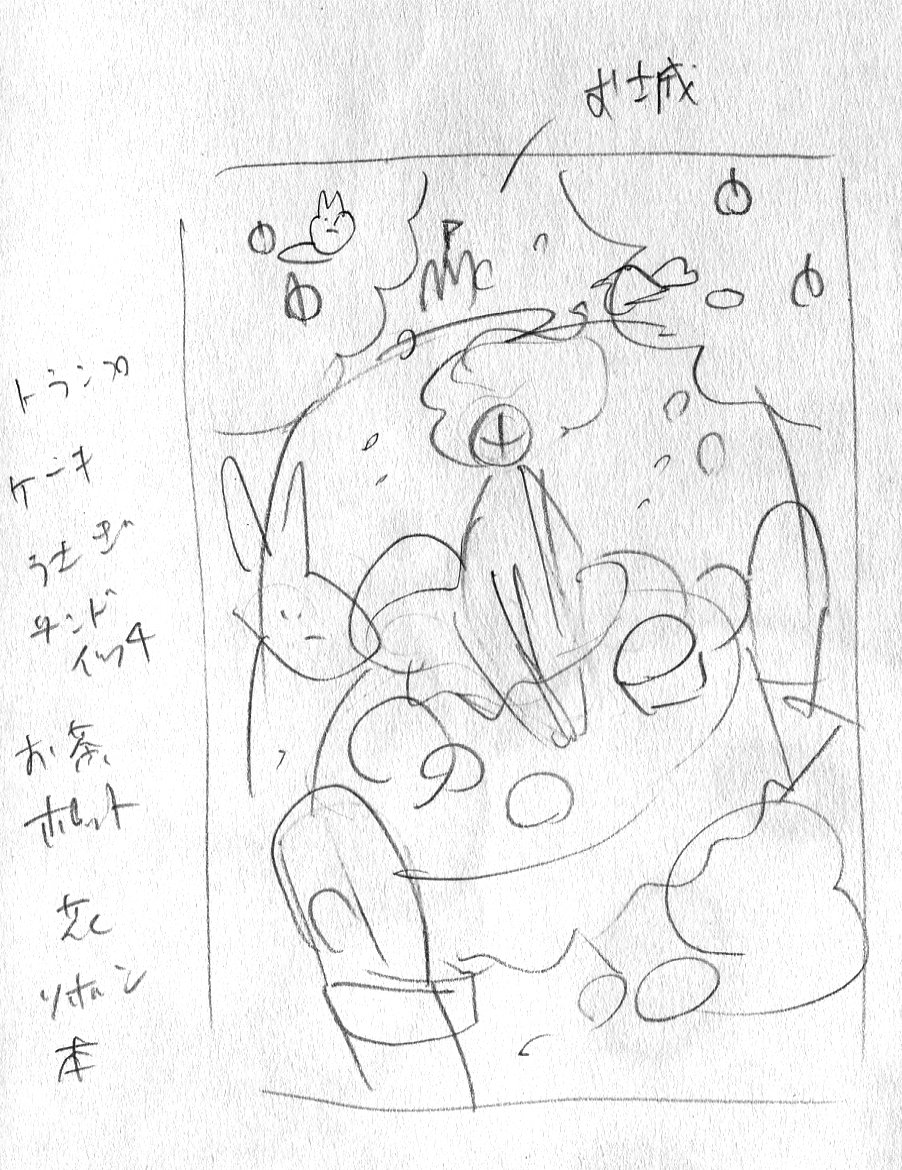 お城
トランプ
ケーキ
うさぎ
サンド
イッチ
お茶
ポット
花
リボン
本